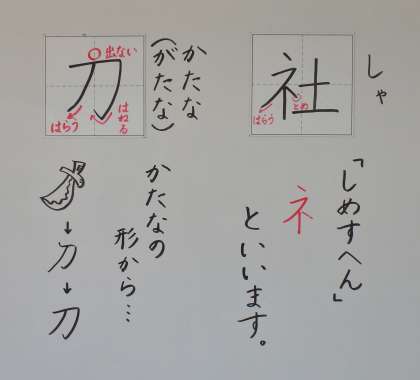 しゃ
社
はらう
とめ
「しめすへん」
ネ
といいます。
かたな
(がたな)
刀
出ない
はねる
はらう
かたなの
形から…
刀
刀